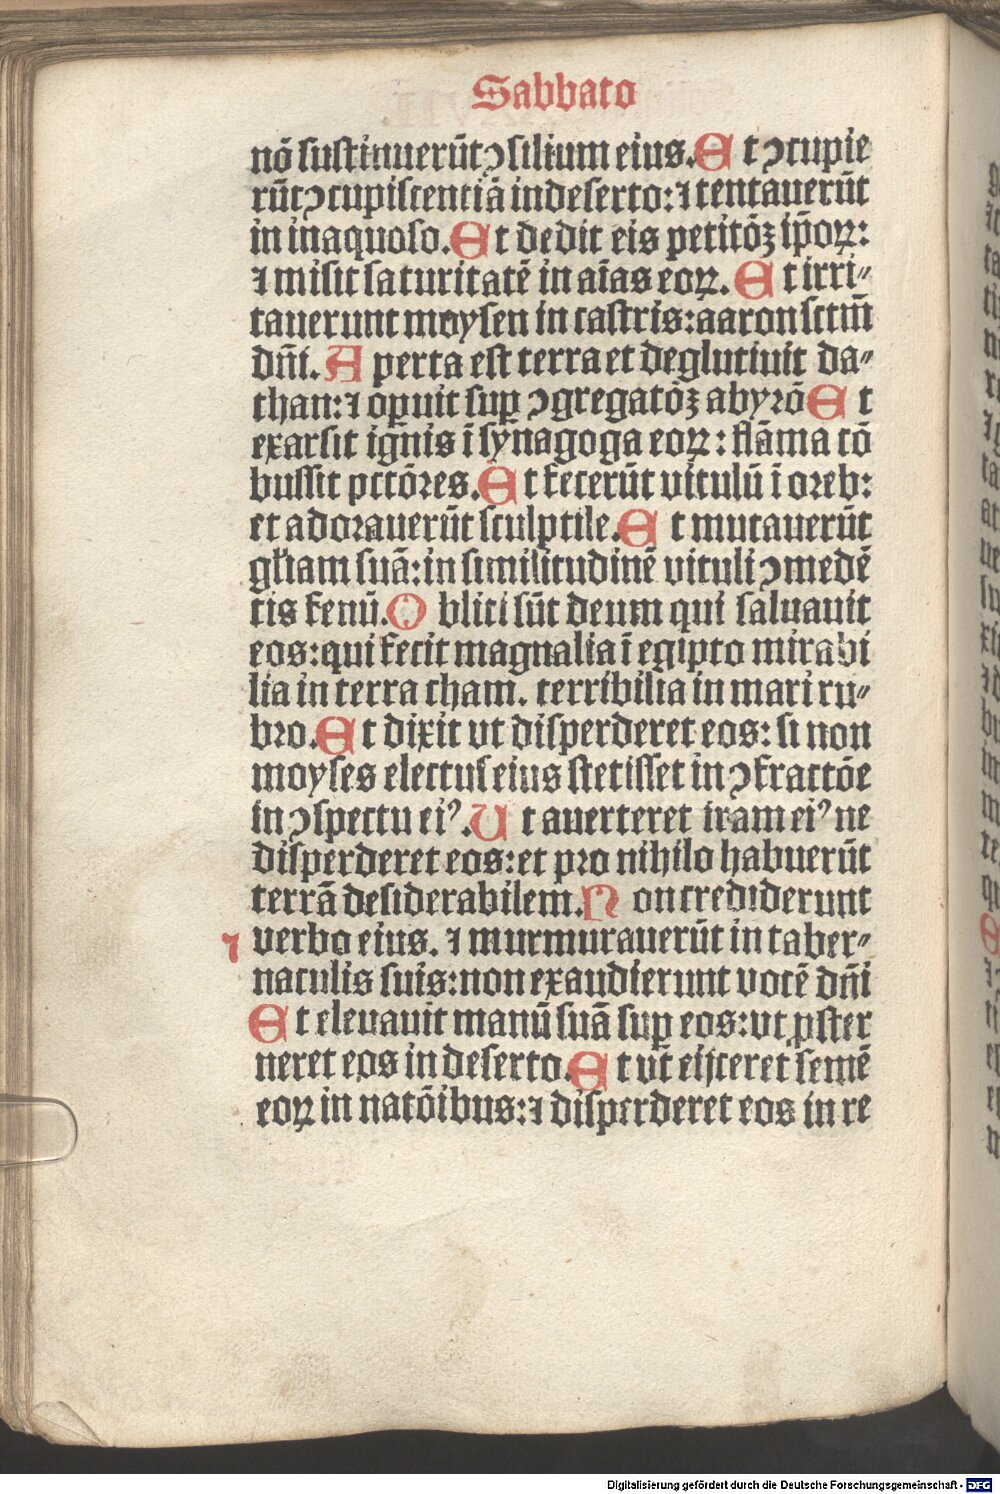 Sabbato
nō sustinuerūt ɔsilium eius. Et ɔcupie
rūt ɔcupiscentiā in deserto: ⁊ tentauerūt
in inaquoso. Et dedit eis petitōꝫ ip̄oꝝ:
⁊ misit saturitatē in aīas eoꝝ. Et irri⸗
tauerunt moysen in castris: aaron sctm̄
dn̄i. Aperta est terra et deglutiuit da⸗
than: ⁊ oꝑuit suꝑ ɔgregatōꝫ abyrō Et
exarsit ignis ī synagoga eoꝝ: flāma cō
bussit pctōres. Et fecerūt vitulū ī oreb:
et adorauerūt sculptile. Et mutauerūt
gl'iam suā: in similitudinē vituli ɔmedē
tis fenū. Obliti sūt deum qui saluauit
eos: qui fecit magnalia ī egipto mirabi
lia in terra cham. terribilia in mari ru⸗
bro. Et dixit vt disperderet eos: si non
moyses electus eius stetisset in ɔfractōe
in ɔspectu eiꝰ. Ut auerteret iram eiꝰ ne
disperderet eos: et pro nihilo habuerūt
terrā desiderabilem. Non crediderunt
⁊ verbo eius. ⁊ murmurauerūt in taber⸗
naculis suis: non exaudierunt vocē dn̄i
Et eleuauit manū suā suꝑ eos: vt ꝓster
neret eos in deserto. Et vt eijceret semē
eoꝝ in natōibus: ⁊ disperderet eos in re
Digitalisierung gefördert durch die Deutsche Forschungsgemeinschaft - DFG